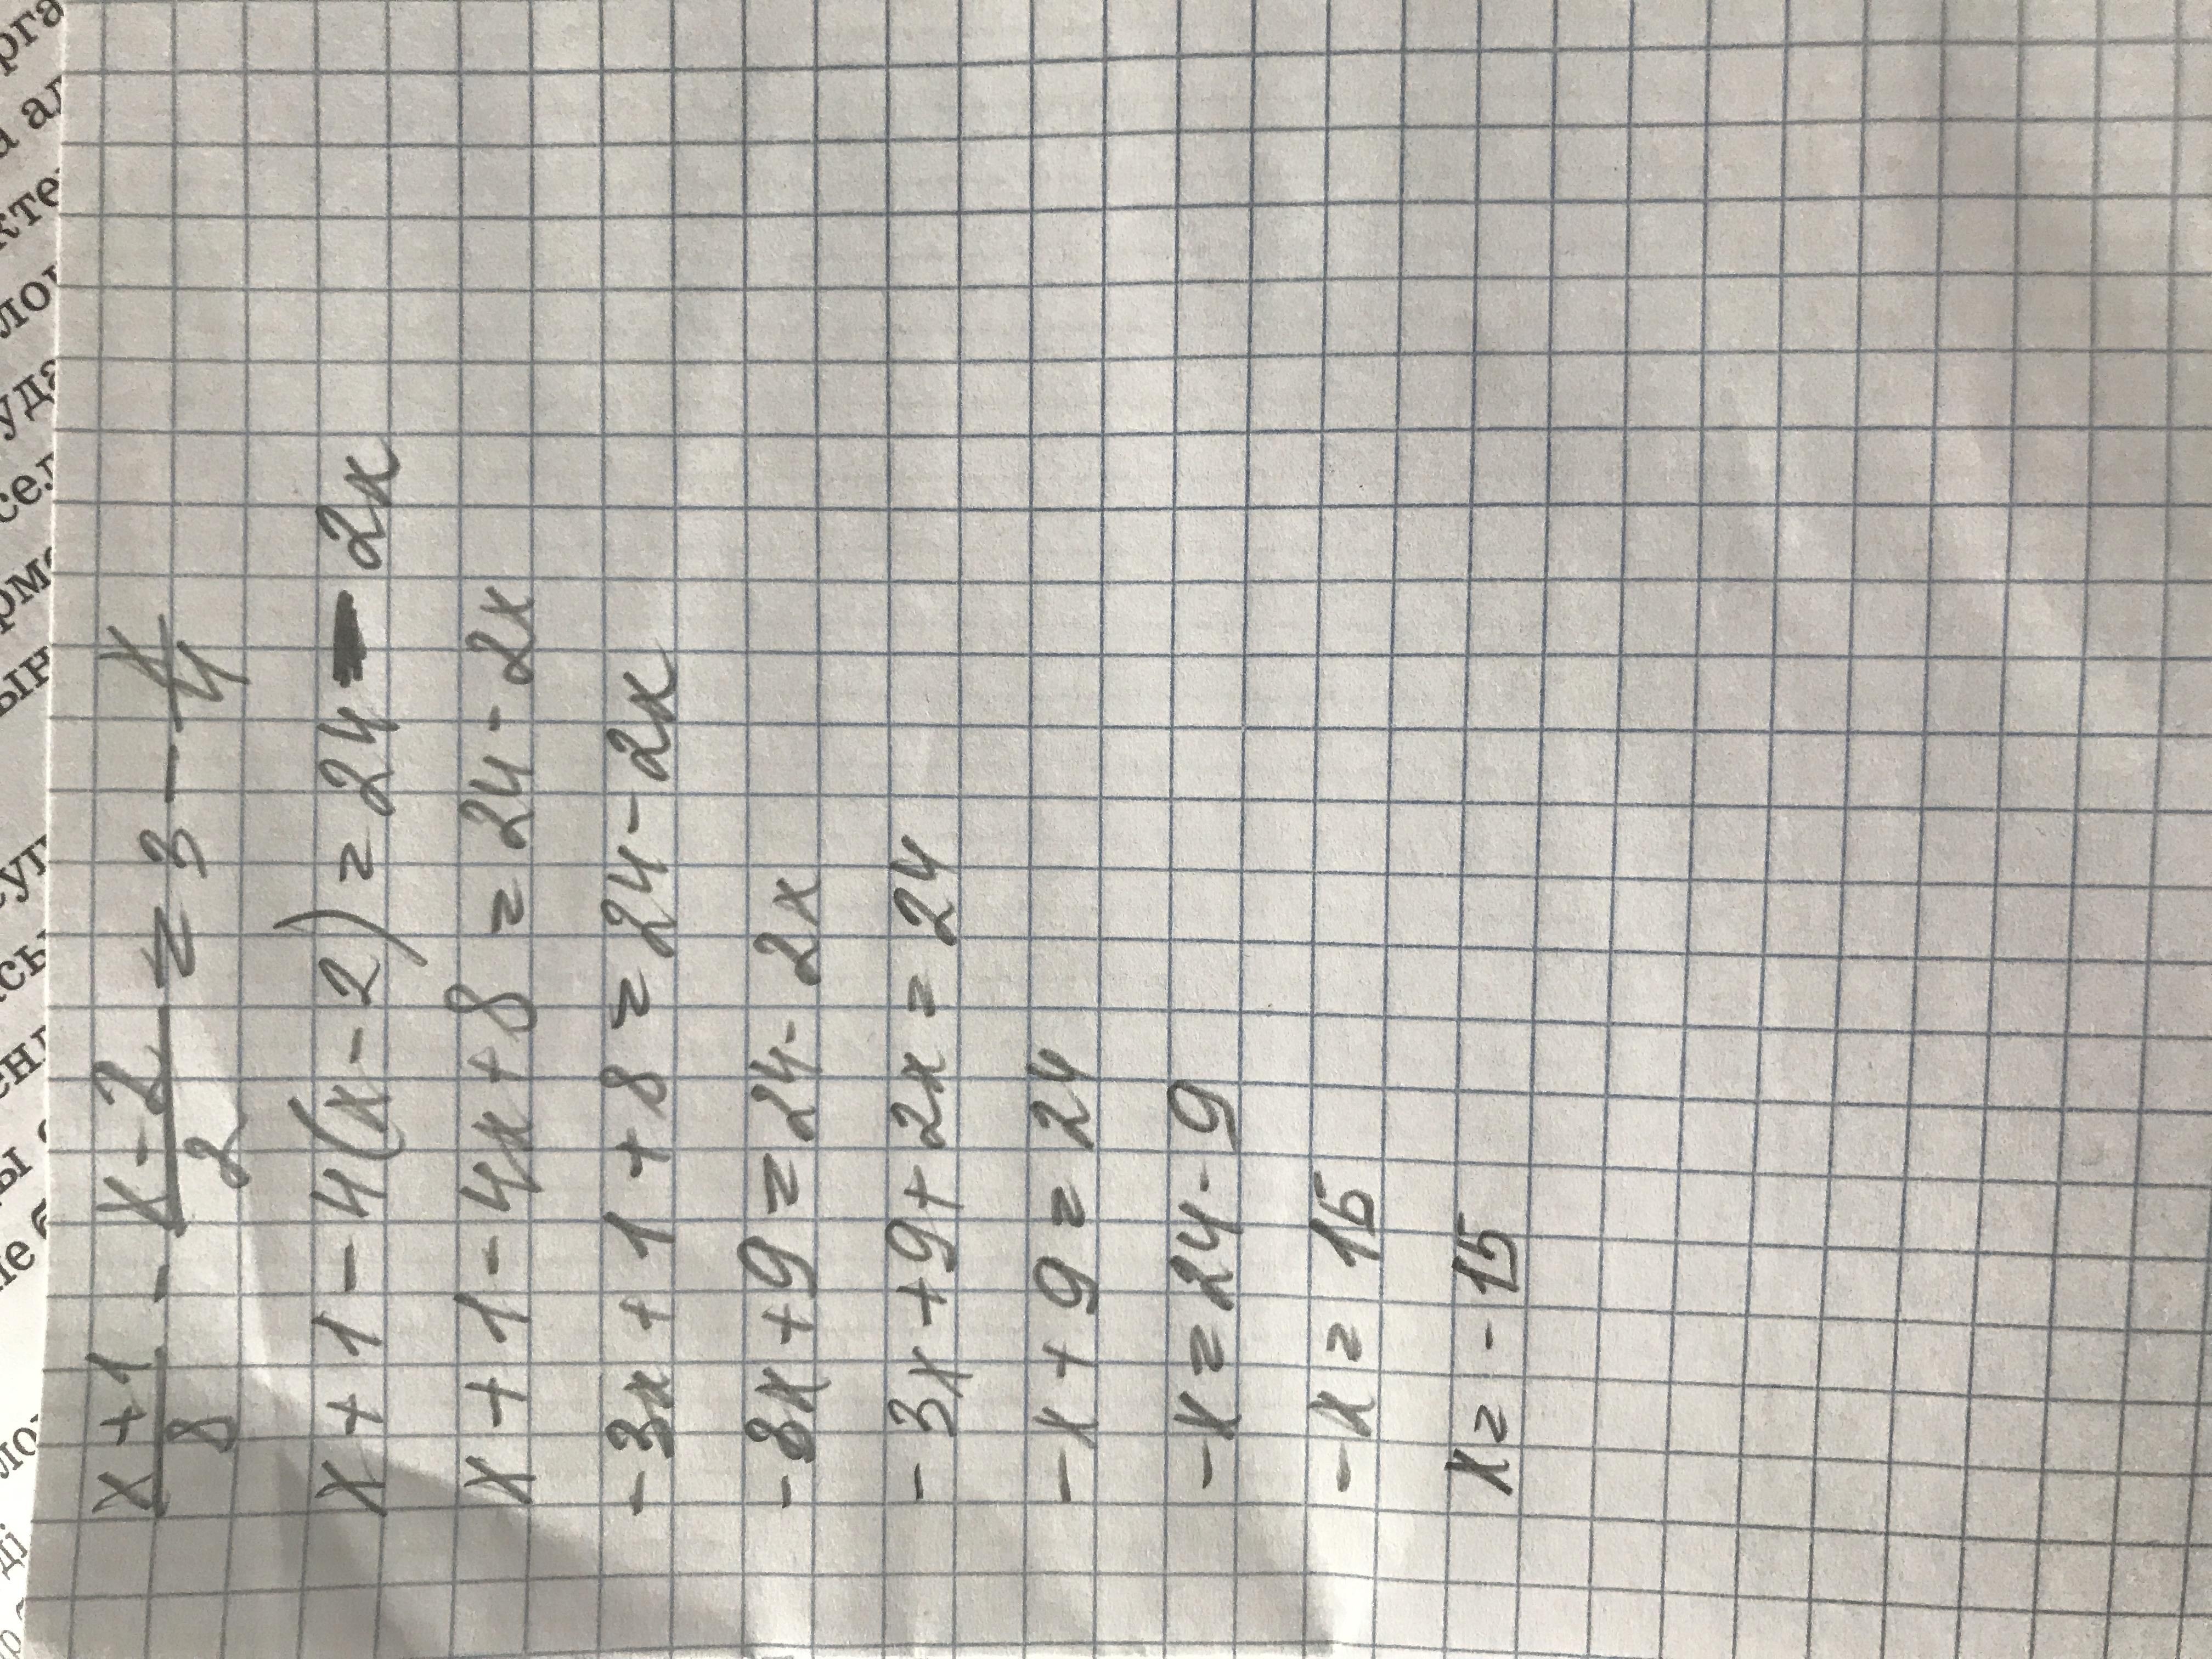 x+1/8 - x-2/2 = 3 - x/4
x+1-4(x-2)=24-2x
x+1-4x+8=24-2x
-3x+1+8=24-2x
-3x+9=24-2x
-3x+9+2x=24
-x+9=24
-x=24-9
-x=15
x=-15